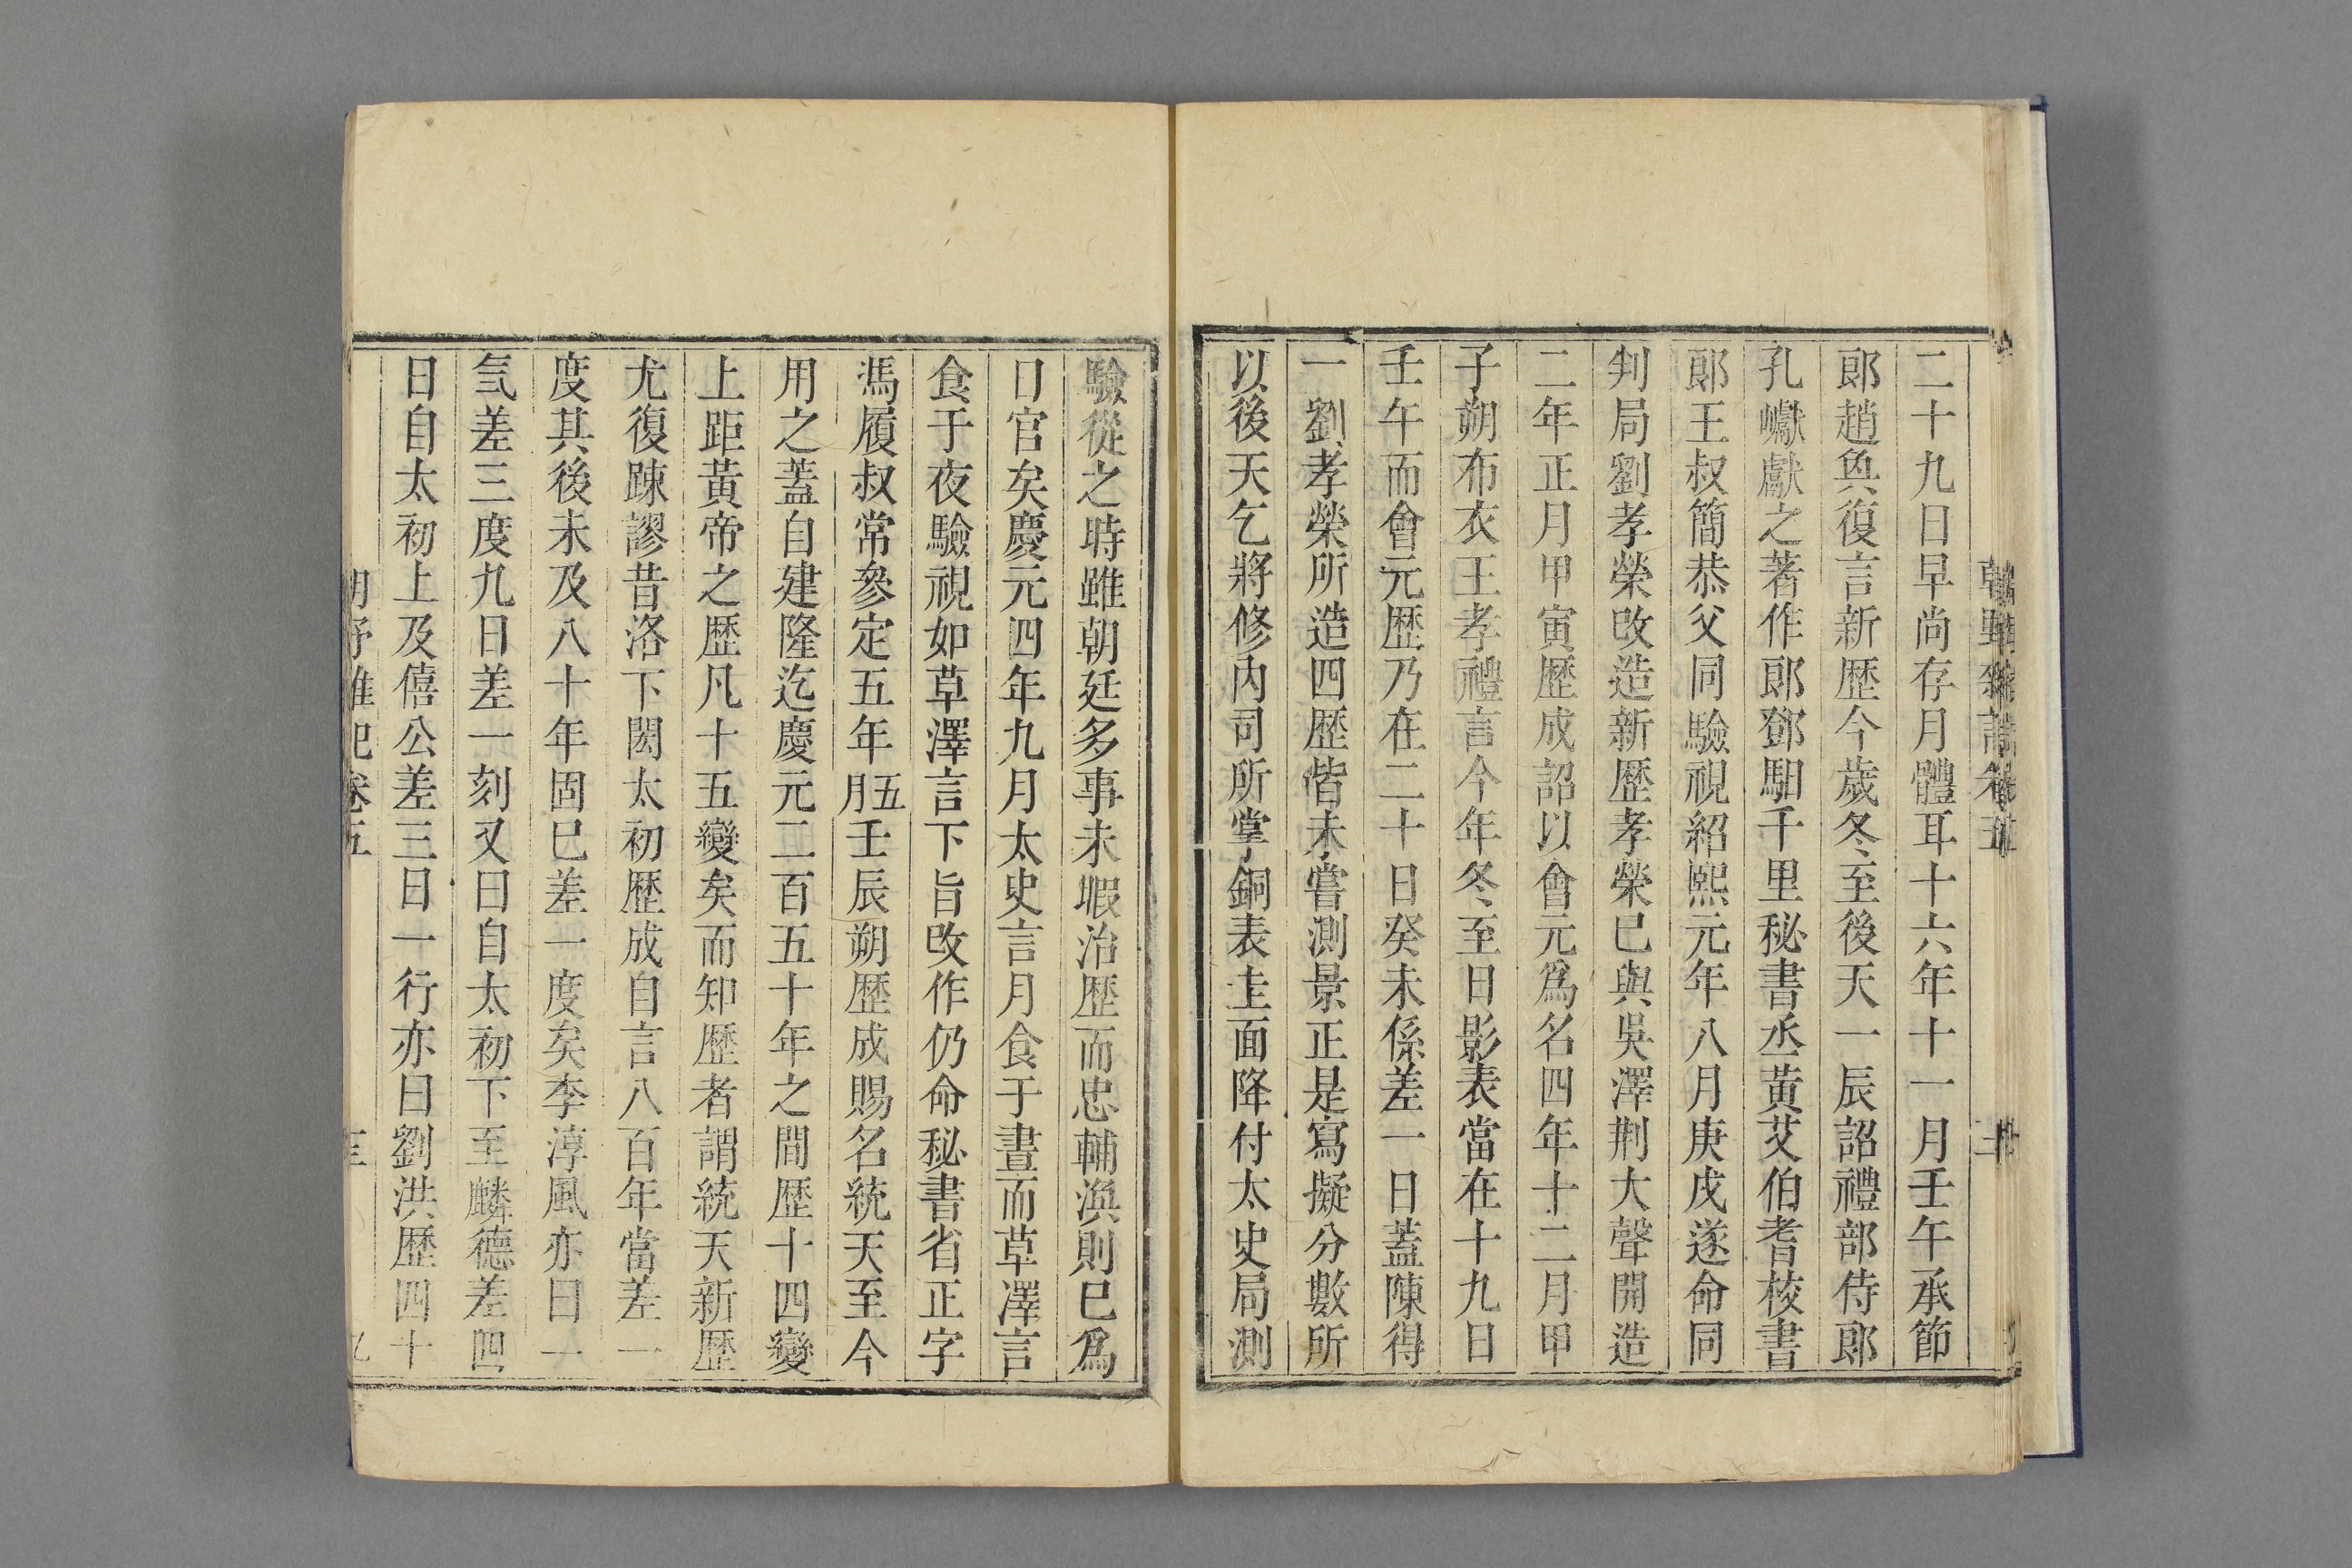 二十九日早尚存月體耳十六年十一月壬午承節
郎趙奐復言新歷今歲冬至後天一辰詔禮部侍郎
孔巘獻之著作郎鄧馹千里秘書丞黃艾伯耆校書
郎王叔簡恭父同驗視紹熙元年八月庚戌遂命同
判局劉孝榮改造新歷孝榮已與吳澤荆大聲開造
二年正月甲寅歷成詔以會元爲名四年十二月甲
子朔布衣王孝禮言今年冬至日影表當在十九日
壬午而會元歷乃在二十日癸未係差一日蓋陳得
一劉孝榮所造四歷皆未嘗測景正是寫擬分數所
以後天乞將修內司所掌銅表圭面降付太史局測
驗從之時雖朝廷多事未暇治歷而忠輔渙則已爲
日官矣慶元四年九月太史言月食于晝而草澤言
食于夜驗視如草澤言下旨改作仍命秘書省正字
馮履叔常參定五年五月壬辰朔歷成賜名統天至今
用之蓋自建隆迄慶元二百五十年之間歷十四變
上距黃帝之歷凡十五變矣而知歷者謂統天新歷
尤復踈謬昔洛下閎太初歷成自言八百年當差一
度其後未及八十年固已差一度矣李淳風亦曰一
氣差三度九日差一刻又曰自太初下至麟德差四
日自太初上及僖公差三日一行亦曰劉洪歷四十
卷五